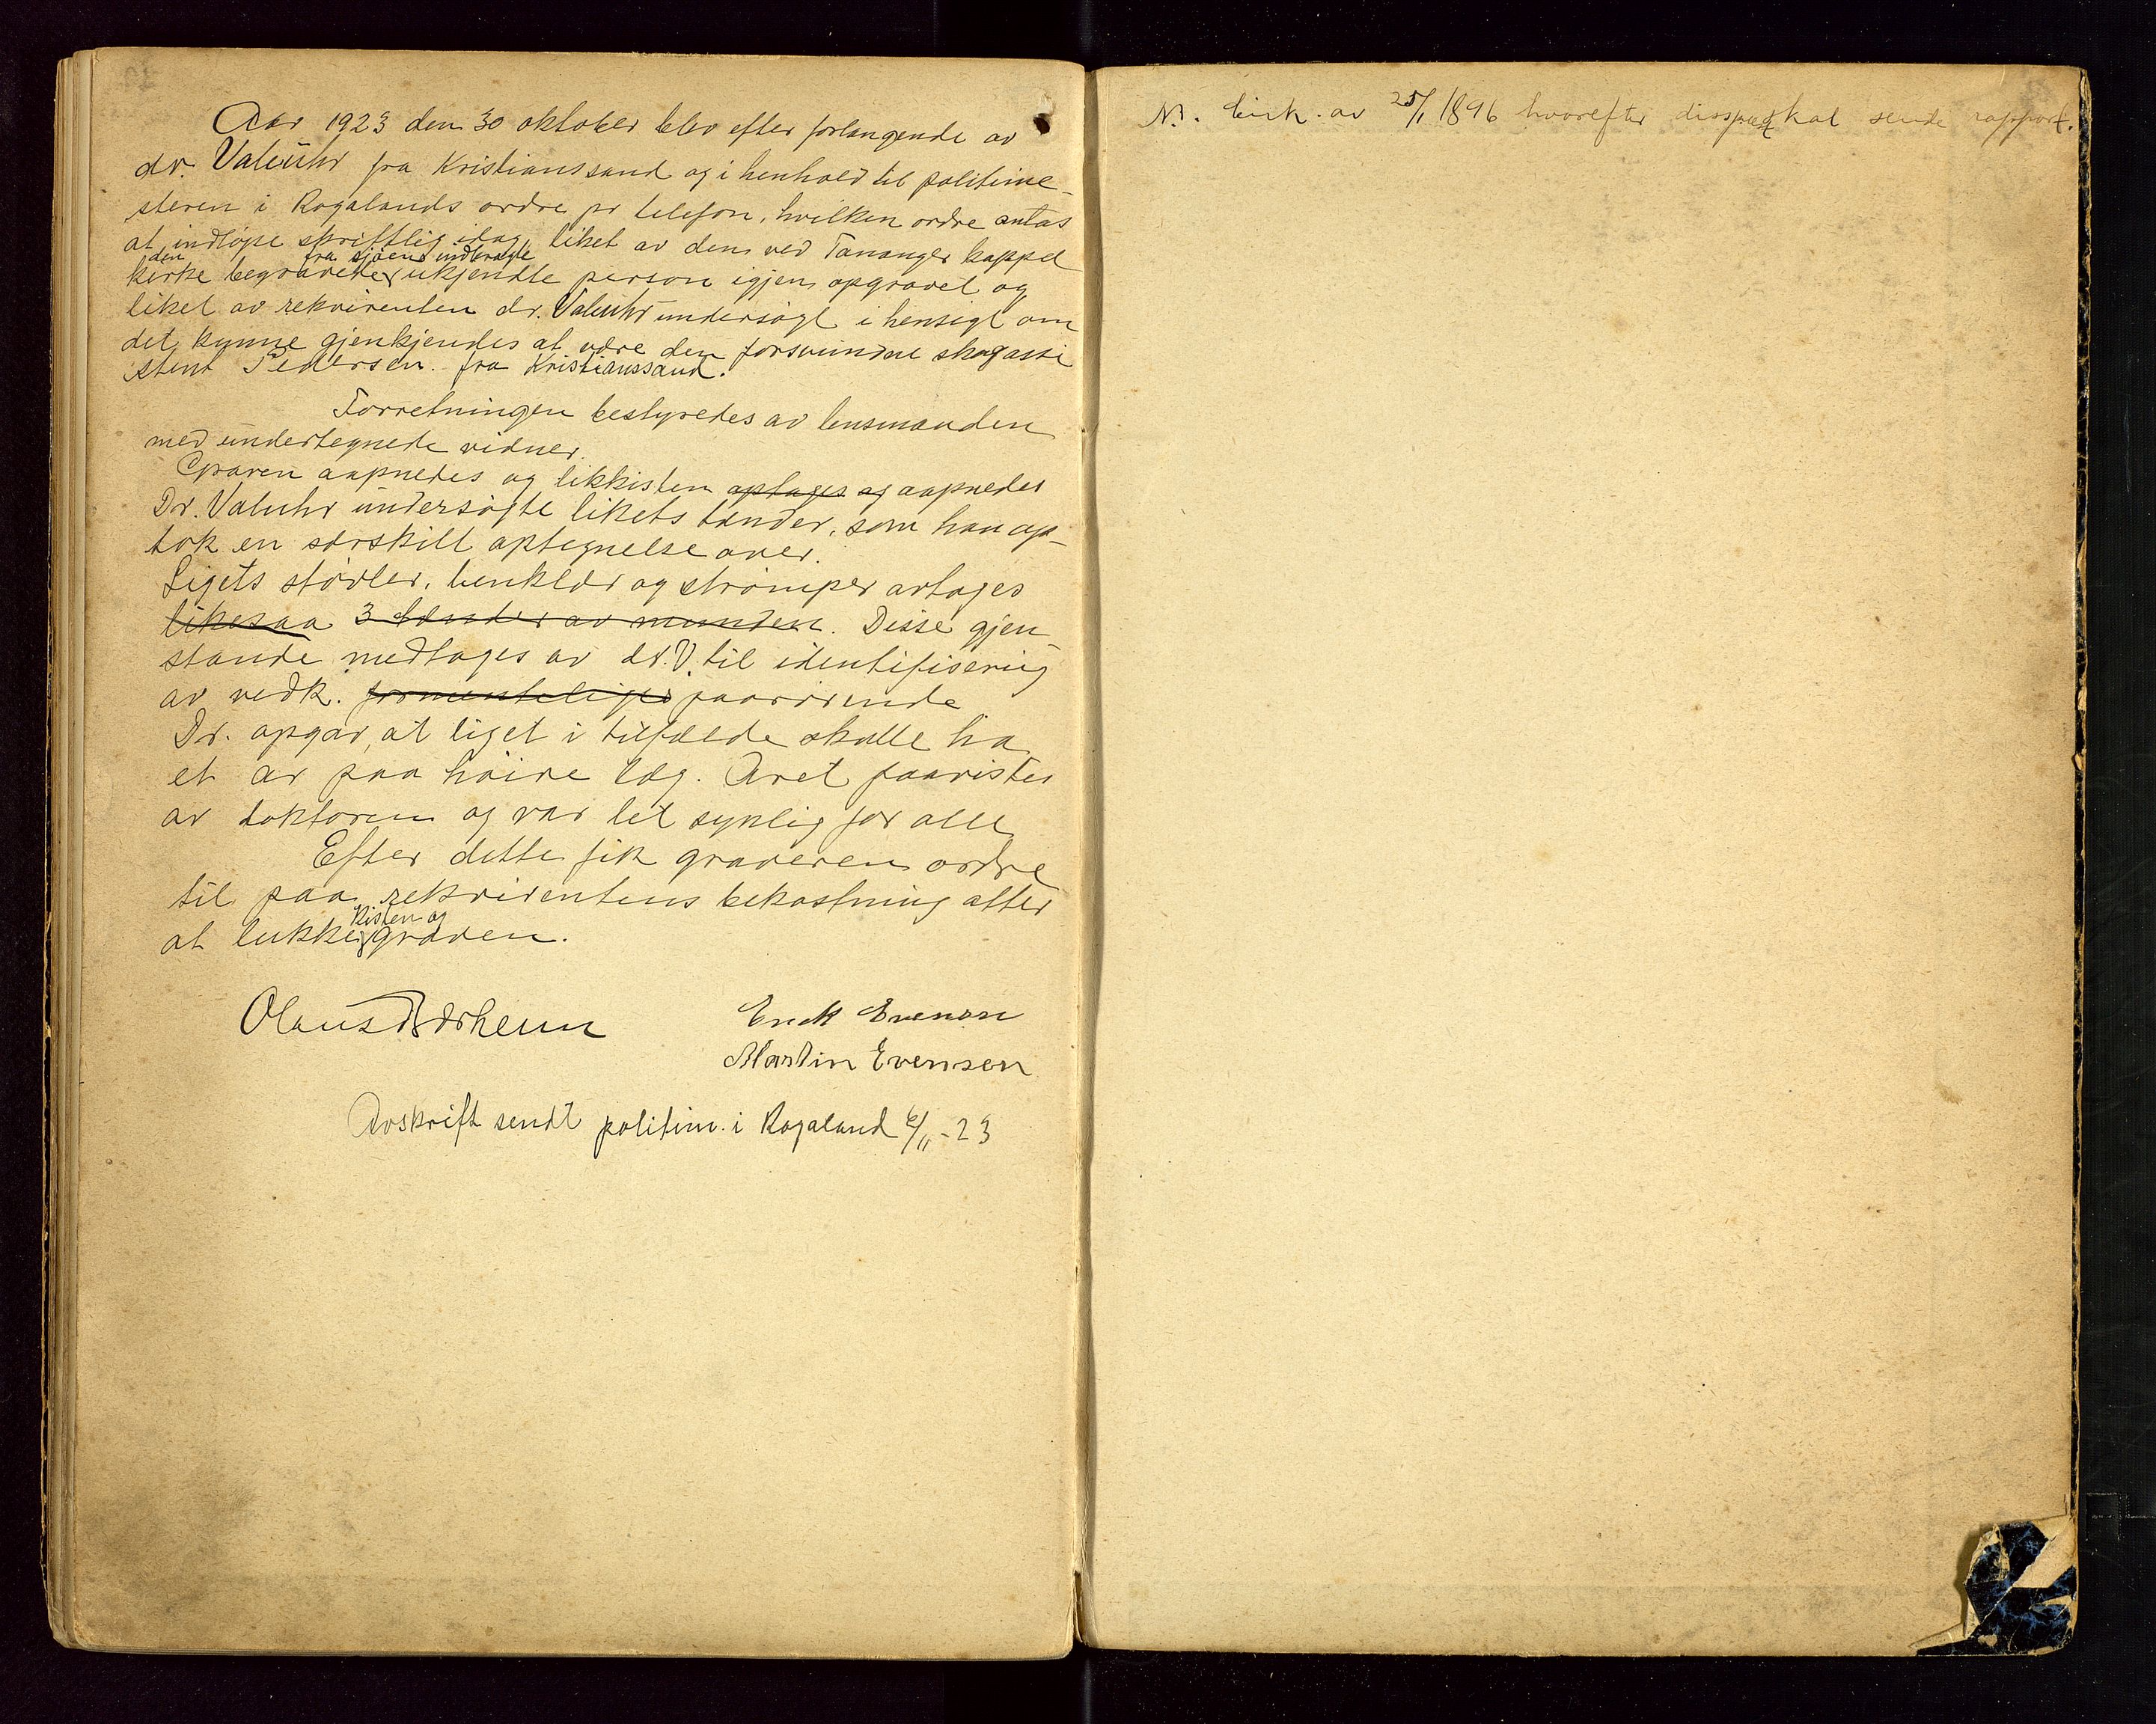 Aar 1923 den 30 oktober blev efter forlangende av
dr. Valeuhr fra Kristianssand og i henhold til politime-
steren i Rogalands ordre pr telefon, hvilken ordre antas
at indløpe skriftlig idag, liket av den ved Tananger kappel
den fra sjøen indbragte
kirke begravede ukjendte person igjen opgravet og
liket av rekvirenten dr. Valeuhr undersøgt i hensigt om
det kunne gjenkjendes at være den forsvundne skogassi
stent Pedersen fra Kristianssand.
Forretningen bestyredes av lensmanden
med undertegnede vidner.
Graven aapnedes og likkisten optages og aapnedes
Dr. Valuhr undersøgte likets tænder, som han op-
tok en særskilt optegnelse over.
Ligets støvler, benklær og strømper avtoges
likesaa 3 tænder av munden. Disse gjen
stande medtages av dr. V. til identifisering
av vedk. formentelige paarørende
Dr. opgav, at liget i tilfælde skulle ha
et ar paa høire læg. Aret paavistes
av doktoren og var let synlig for alle
Efter dette fik graveren ordre
til paa rekvirentens bekostning atter
kisten og
at lukke graven.
Olaus Bærheim
Erick Evensen
Martin Evensen
Avskrift sendt politim. i Rogaland 6/11-23
N.. Cirk. av 25/1 1896 hvorefter skal sende rapport.